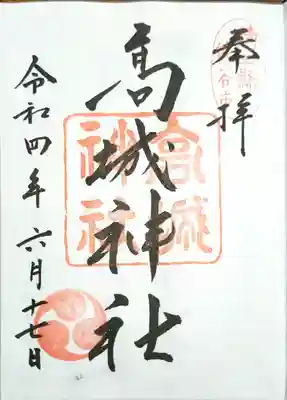 奉拝
高城神社
高城
神社
令和四年六月十七日